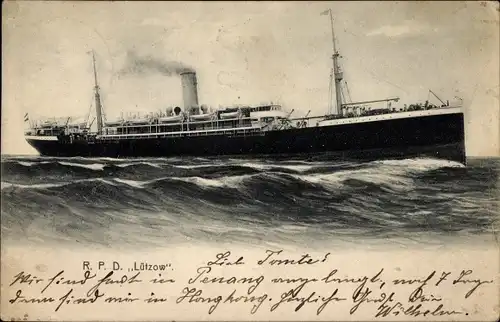 R. P. D. „Lützow“.
Wir sind heut in Penang angelangt, noch 7 Tage
dann sind wir in Hongkong. Herzliche Grüße Dein
Wilhelm.